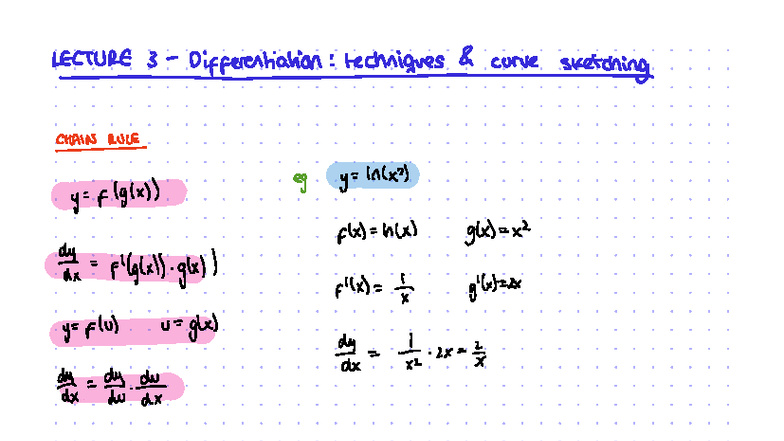 LECTURE 3 - Differentiation: techniques & curve sketching
CHAIN RULE
y = f(g(x))
dy/dx = f'(g(x)) · g(x))
y = f(u) u = g(x)
dy/dx = dy/du · du/dx
eg y = ln(x²)
f(x) = ln(x) g(x) = x²
f'(x) = 1/x g'(x) = 2x
dy/dx = 1/x² · 2x = 2/x